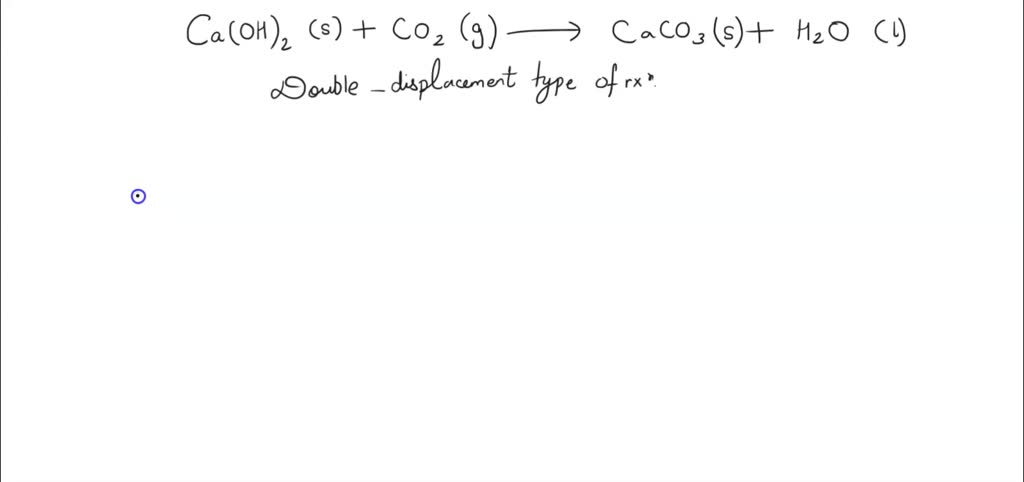 Ca(OH)₂ (s) + CO₂ (g) ⟶ CaCO₃(s) + H₂O (l)
Double - displacement type of rxⁿ.